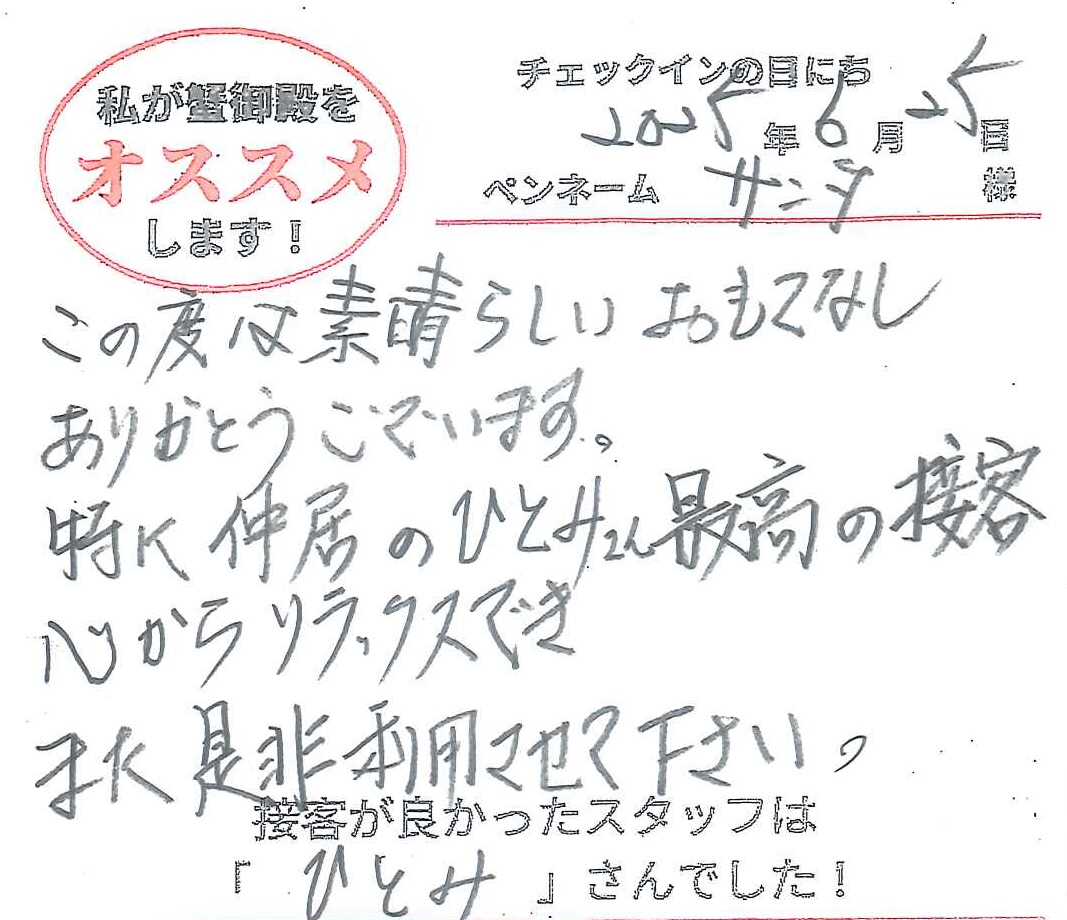 私が蟹御殿を
オススメ
します！
チェックインの日にち
2025年6月25日
ペンネーム サニタ 様
この度は素晴らしいおもてなし
ありがとうございます。
特に仲居のひとみさん最高の接客
心からリラックスでき
また是非利用させて下さい。
接客が良かったスタッフは
「ひとみ」さんでした！